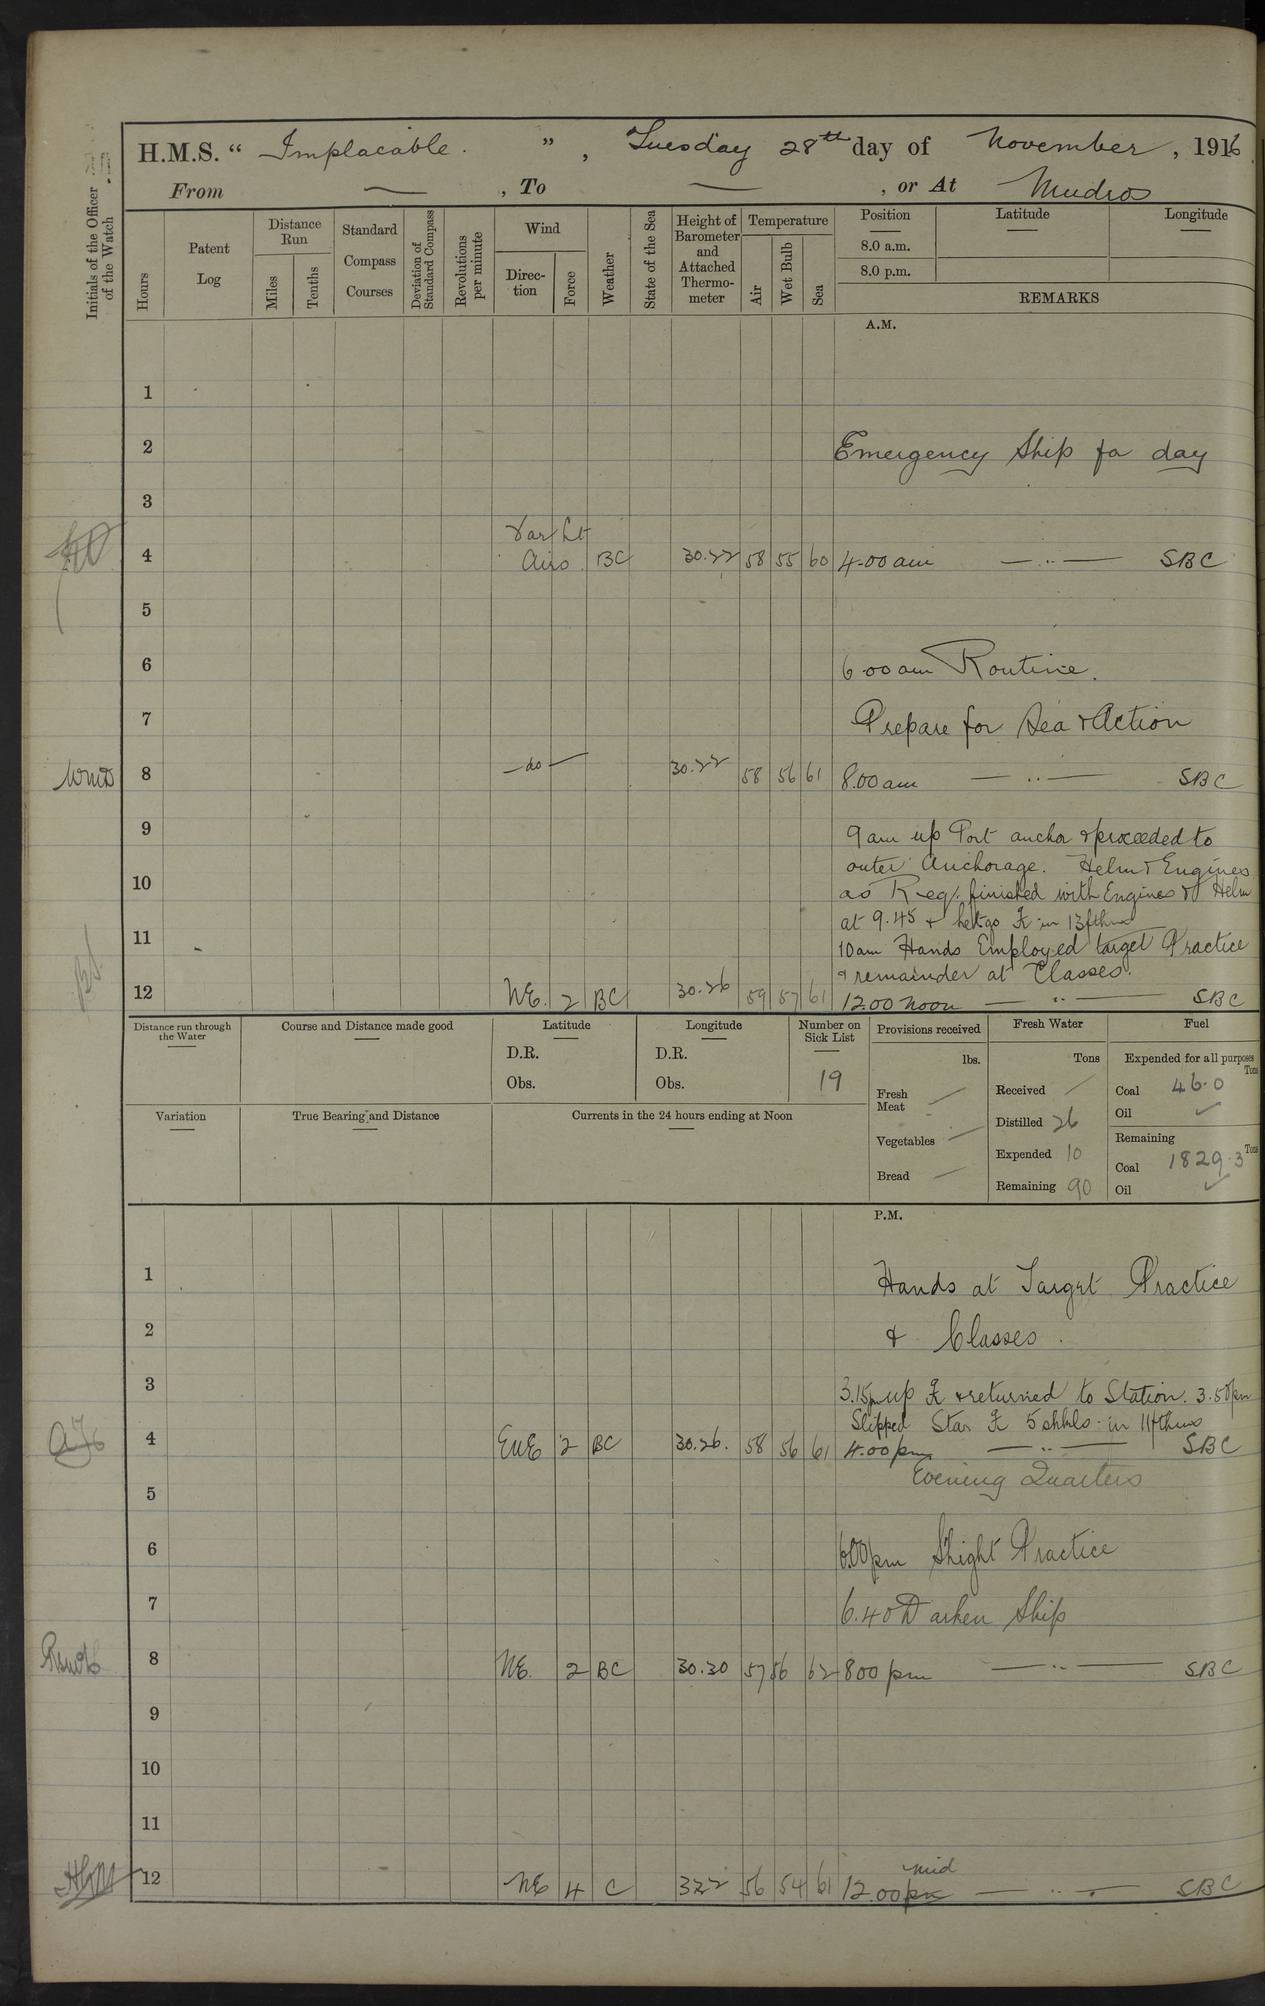 H.M.S. “ Implacable. ” , Tuesday 28th day of November , 1916
From — , To — , or At Mudros
Initials of the Officer of the Watch
Hours
Patent Log
Distance Run
Miles
Tenths
Standard Compass Courses
Deviation of Standard Compass
Revolutions per minute
Wind
Direc-tion
Force
Weather
State of the Sea
Height of Barometer and Attached Thermo-meter
Temperature
Air
Wet Bulb
Sea
Position
Latitude
Longitude
8.0 a.m.
8.0 p.m.
REMARKS
A.M.
1
2 Emergency Ship for day
3
Var Lt
4 Airs BC 30.22 58 55 60 4.00 am — .. — SBC
5
6 6.00 am Routine.
7 Prepare for Sea & Action
8 — do — 30.22 58 56 61 8.00 am — .. — SBC
9 9 am up Port anchor & proceeded to
outer Anchorage. Helm & Engines
10 as Req. finished with Engines & Helm
at 9.45 & let go in 13 fthms
11 10 am Hands Employed target Practice
& remainder at Classes.
12 NE. 2 BC 30.26 59 57 61 12.00 noon — .. — SBC
Distance run through the Water
Course and Distance made good
Latitude
D.R.
Obs.
Longitude
D.R.
Obs.
Number on Sick List
19
Provisions received
lbs.
Fresh Meat —
Vegetables —
Bread —
Fresh Water
Tons
Received
Distilled 26
Expended 10
Remaining 90
Fuel
Expended for all purposes
Tons
Coal 46.0
Oil ✓
Remaining
Tons
Coal 1829.3
Oil ✓
Variation
True Bearing and Distance
Currents in the 24 hours ending at Noon
P.M.
1 Hands at Target Practice
2 & Classes.
3 3.15pm up & returned to Station. 3.50pm
Slipped Star 5 shkls in 11 fthms
4 ENE 2 BC 30.26. 58 56 61 4.00 pm — .. — SBC
Evening Quarters
5
6 6.00 pm Practice
7 6.40 Darken Ship
8 NE. 2 BC 30.30 57 56 62 8.00 pm — .. — SBC
9
10
11
mid
12 NE 4 C 56 54 61 12.00 pm — .. — SBC